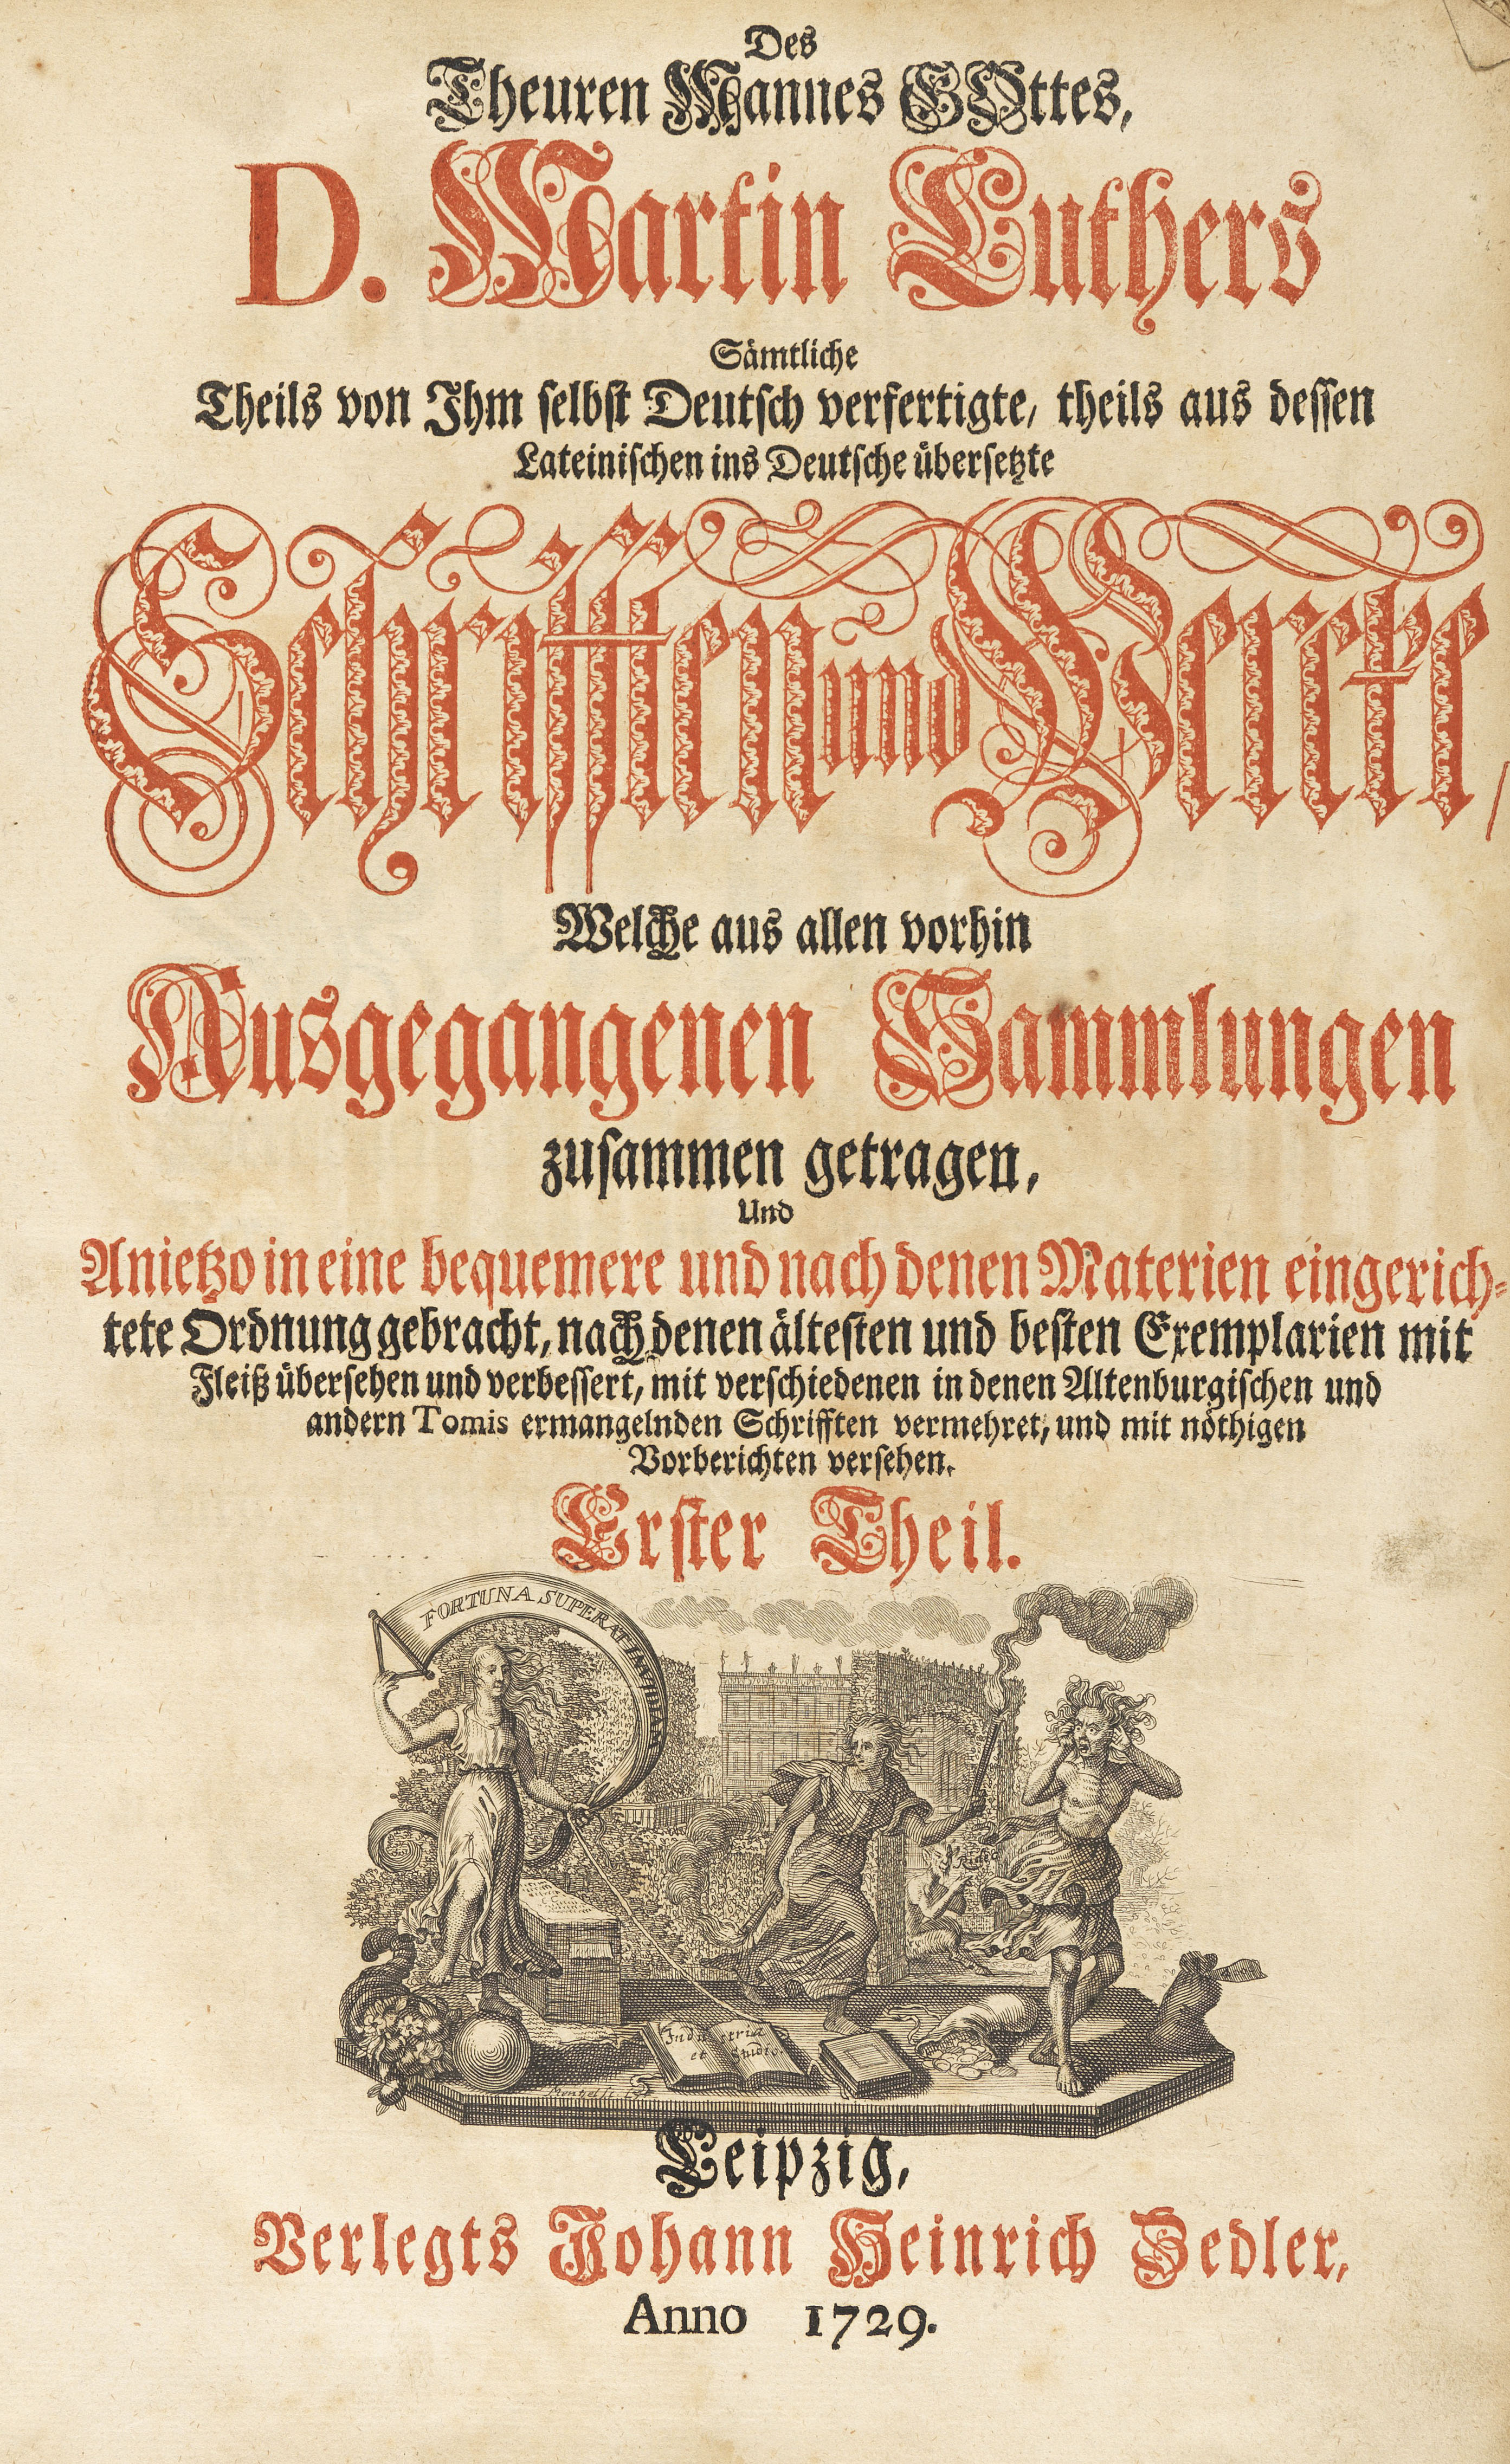 Des
Theuren Mannes GOttes,
D. Martin Luthers
Sämtliche
Theils von Ihm selbst Deutsch verfertigte, theils aus dessen
Lateinischen ins Deutsche übersetzte
Schrifften und Wercke,
Welche aus allen vorhin
Ausgegangenen Sammlungen
zusammen getragen,
Und
Anietzo in eine bequemere und nach denen Materien eingerich-
tete Ordnung gebracht, nach denen ältesten und besten Exemplarien mit
Fleiß übersehen und verbessert, mit verschiedenen in denen Altenburgischen und
andern Tomis ermangelnden Schrifften vermehret, und mit nöthigen
Vorberichten versehen.
Erster Theil.
FORTUNA SUPERAT INVIDIAM
Rideo
Industria
et Studio.
Leipzig,
Verlegts Johann Heinrich Zedler,
Anno 1729.